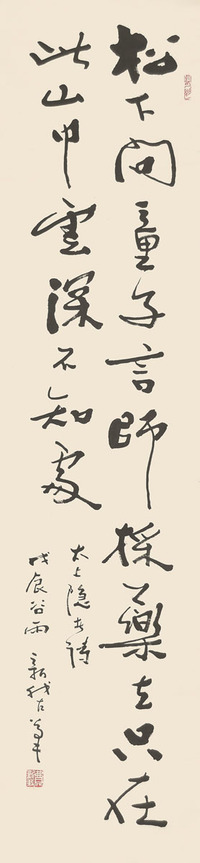 松下問童子言師採藥去只在
此山中雲深不知處
太上隱者詩
戊辰谷雨